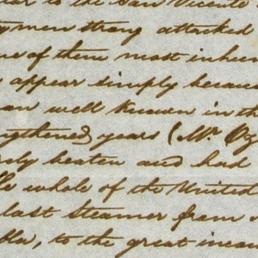 to the San Vicente
men strong attacked
of them most inhu
appear simply becaus
an well known in th
years (Mr. Og
ly beaten and had
le whole of the United
last Steamer from
lla, to the great incon